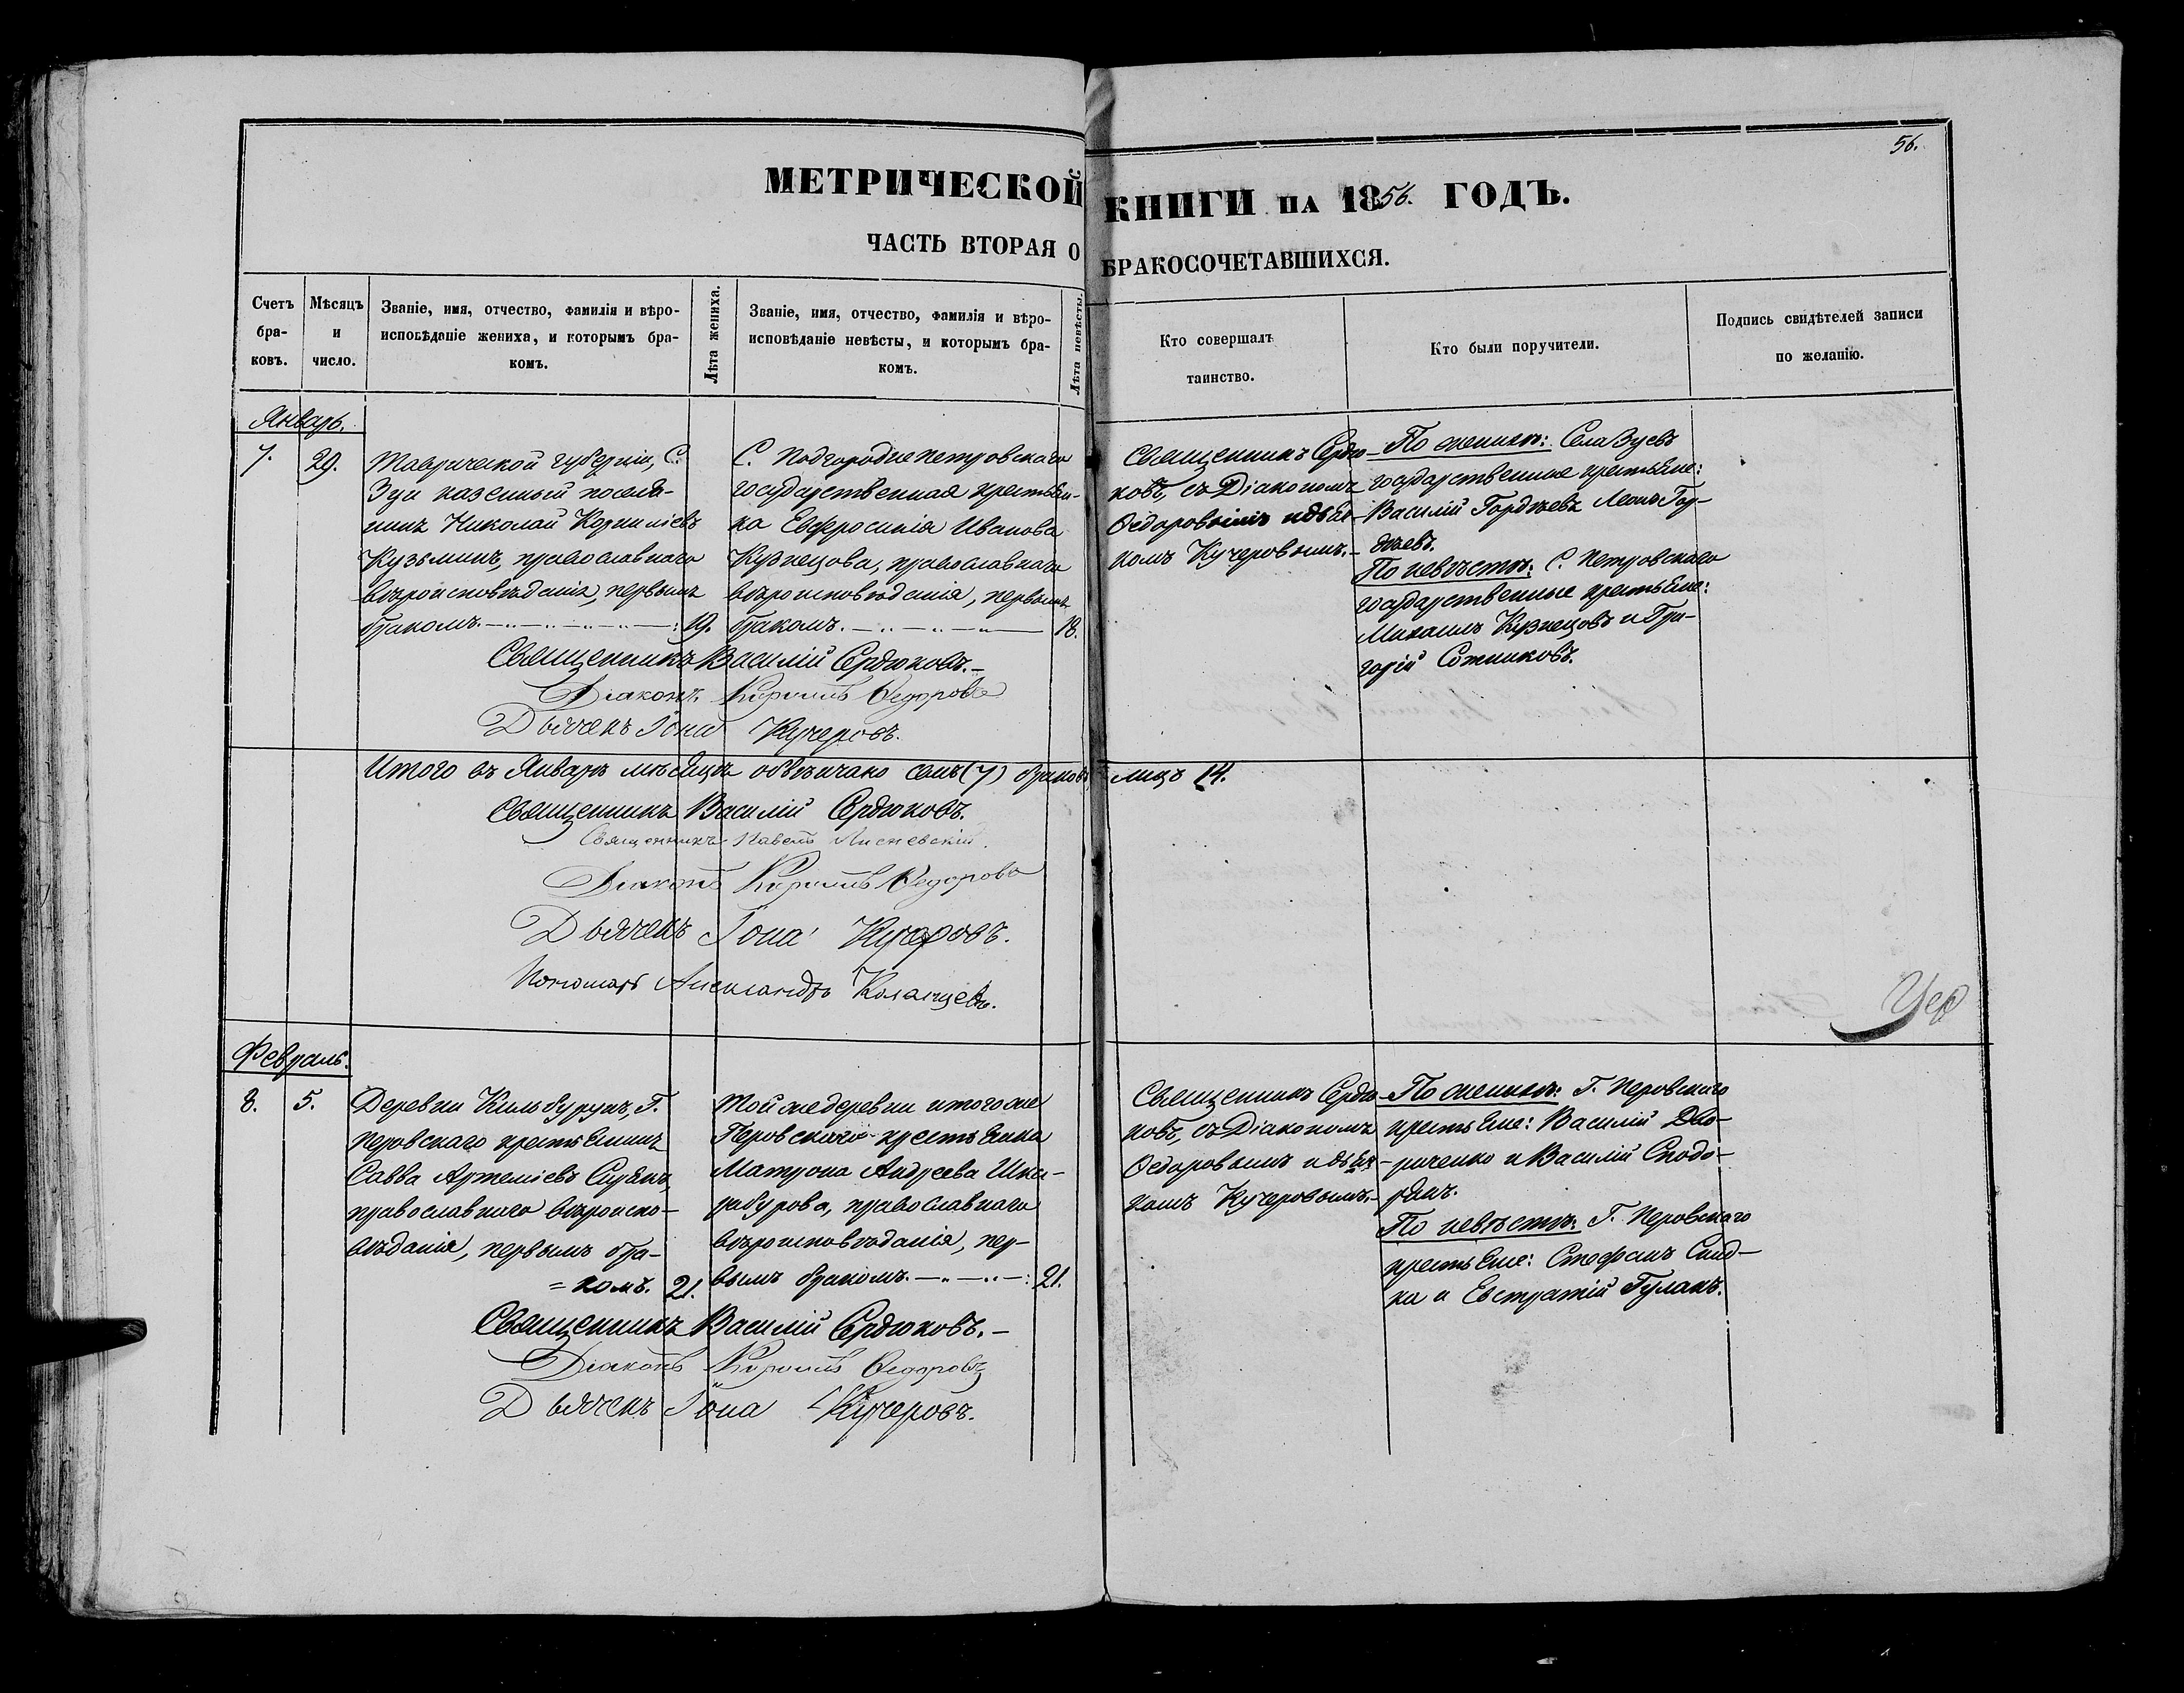 56.
МЕТРИЧЕСКОЙ КНИГИ НА 1856. ГОДЪ.
ЧАСТЬ ВТОРАЯ О БРАКОСОЧЕТАВШИХСЯ.
Счетъ бра-ковъ.
Мѣсяцъ и число.
Званіе, имя, отчество, фамилія и вѣро-
исповѣданіе жениха, и которымъ бра-
комъ.
Лѣта жениха.
Званіе, имя, отчество, фамилія и вѣро-
исповѣданіе невѣсты, и которымъ бра-
комъ.
Лѣта невѣсты.
Кто совершалъ
таинство.
Кто были поручители.
Подпись свидѣтелей записи
по желанію.
Январь.
7.
29.
Таврической губерніи, С.
Зуи казенный поселя-
нинъ Николай Корниліевъ
Кузьминъ, православнаго
вѣроисповѣданія, первымъ
бракомъ. 19.
С. Подгородне петровскаго
государственная крестьян-
ка Евфросинія Иванова
Кузнецова, православнаго
вѣроисповѣданія, первымъ
бракомъ. 18.
Священникъ Сердю-
ковъ, съ Діакономъ
Ѳедоровымъ и дьяч-
комъ Кучеровымъ.
По женихѣ: Села Зуевъ
государственные крестьяне:
Василій Гордѣевъ Леонъ Гор-
дѣевъ.
По невѣстѣ: С. Петровскаго
государственные крестьяне:
Михаилъ Кузнецовъ и Гри-
горій Сотниковъ.
Священникъ Василій Сердюковъ.
Діаконъ Кириллъ Ѳедоровъ
Дьячекъ Іона Кучеровъ.
Итого въ Январѣ мѣсяцѣ обвѣнчано семь (7) браковъ, лицъ 14.
Священникъ Василій Сердюковъ.
Священникъ Павелъ Лисневскій.
Діаконъ Кириллъ Ѳедоровъ
Дьячекъ Іона Кучеровъ.
Пономарь Александръ Коланцевъ.
Цер
Февраль.
8.
5.
Деревни Кильбурунъ, Г.
Перовскаго крестьянинъ
Савва Артеміевъ
православнаго вѣроиспо-
вѣданія, первымъ бра-
=комъ. 21.
Той же деревни и того же
Перовскаго крестьянка
Матрона Андреева Шка-
рабурова, православнаго
вѣроисповѣданія, пер-
вымъ бракомъ. 21.
Священникъ Сердю-
ковъ, съ Діакономъ
Ѳедоровымъ и дьяч-
комъ Кучеровымъ.
По женихѣ: Г. Перовскаго
крестьяне: Василій Дво-
риченко и Василій
По невѣстѣ: Г. Перовскаго
крестьяне: Стефанъ
и Евстратій Гулакъ.
Священникъ Василій Сердюковъ.
Діаконъ Кириллъ Ѳедоровъ
Дьячекъ Іона Кучеровъ.